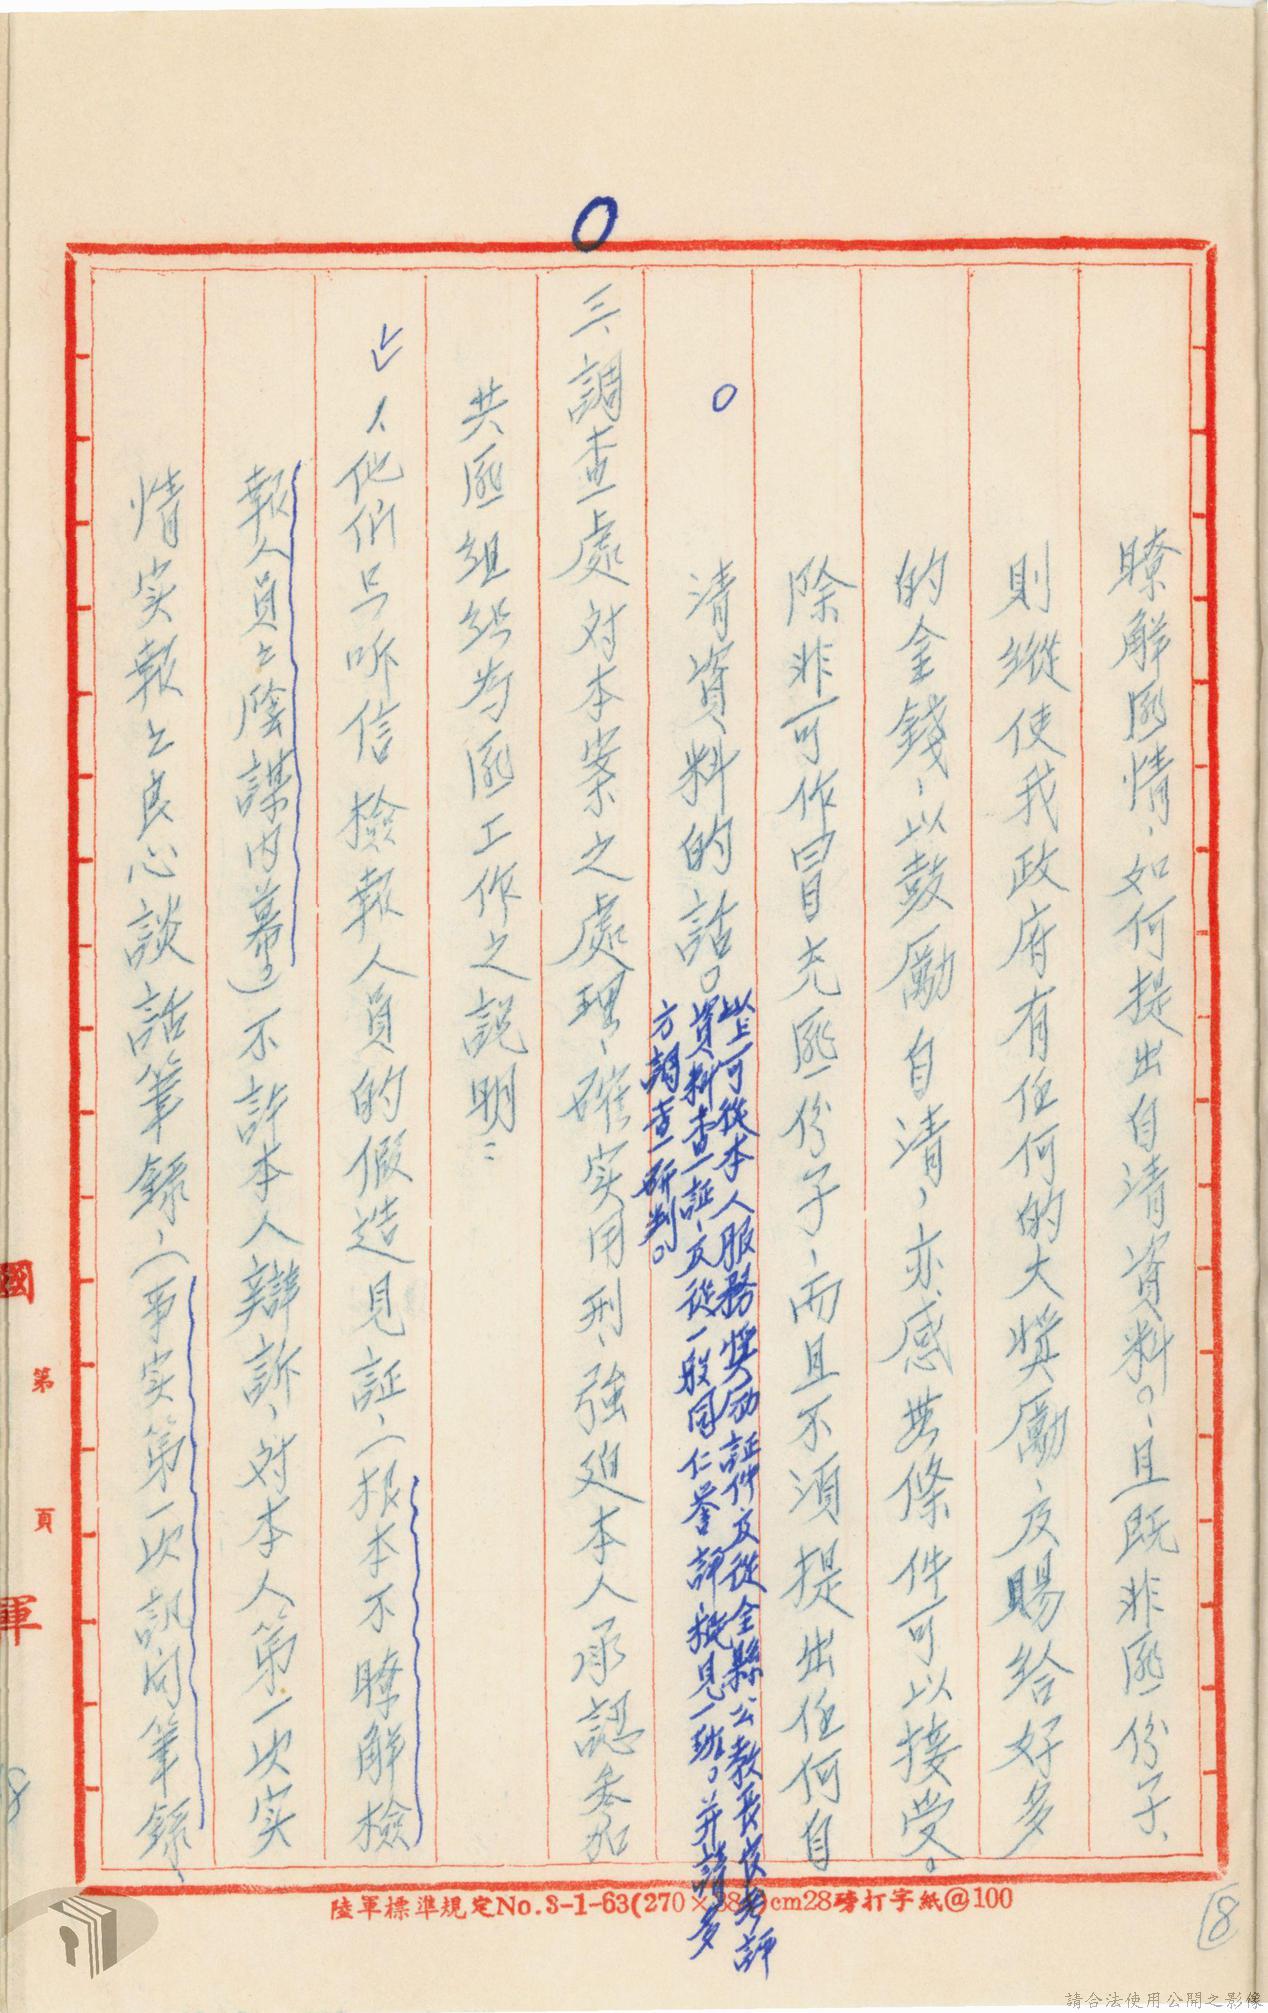 瞭解匪情，如何提出自清資料。，且既非匪份子、
則縱使我政府有任何的大獎勵、及賜給好多
的金錢，以鼓勵自清，亦感無條件可以接受。
除非可作冒充匪份子，而且不須提出任何自
清資料的話。
以上可從本人服務獎勵証件及從全縣公教長官考評
資料查証，及從一般同仁譽評概見一班。并請多
方調查研判。
三、調查處对本案之處理，確实用刑，強迫本人承認參加
共匪組織为匪工作之說明：
1.他们只听信檢報人員的假造見証，（根本不瞭解檢
報人員之陰謀内幕。）不許本人辯訴，对本人第一次实
情实報之良心談話筆錄，（事实第一次訊问筆錄、
國
軍
第 頁
陸軍標準規定No.3-1-63(270×38)cm28磅打字紙@100
8
請合法使用公開之影像